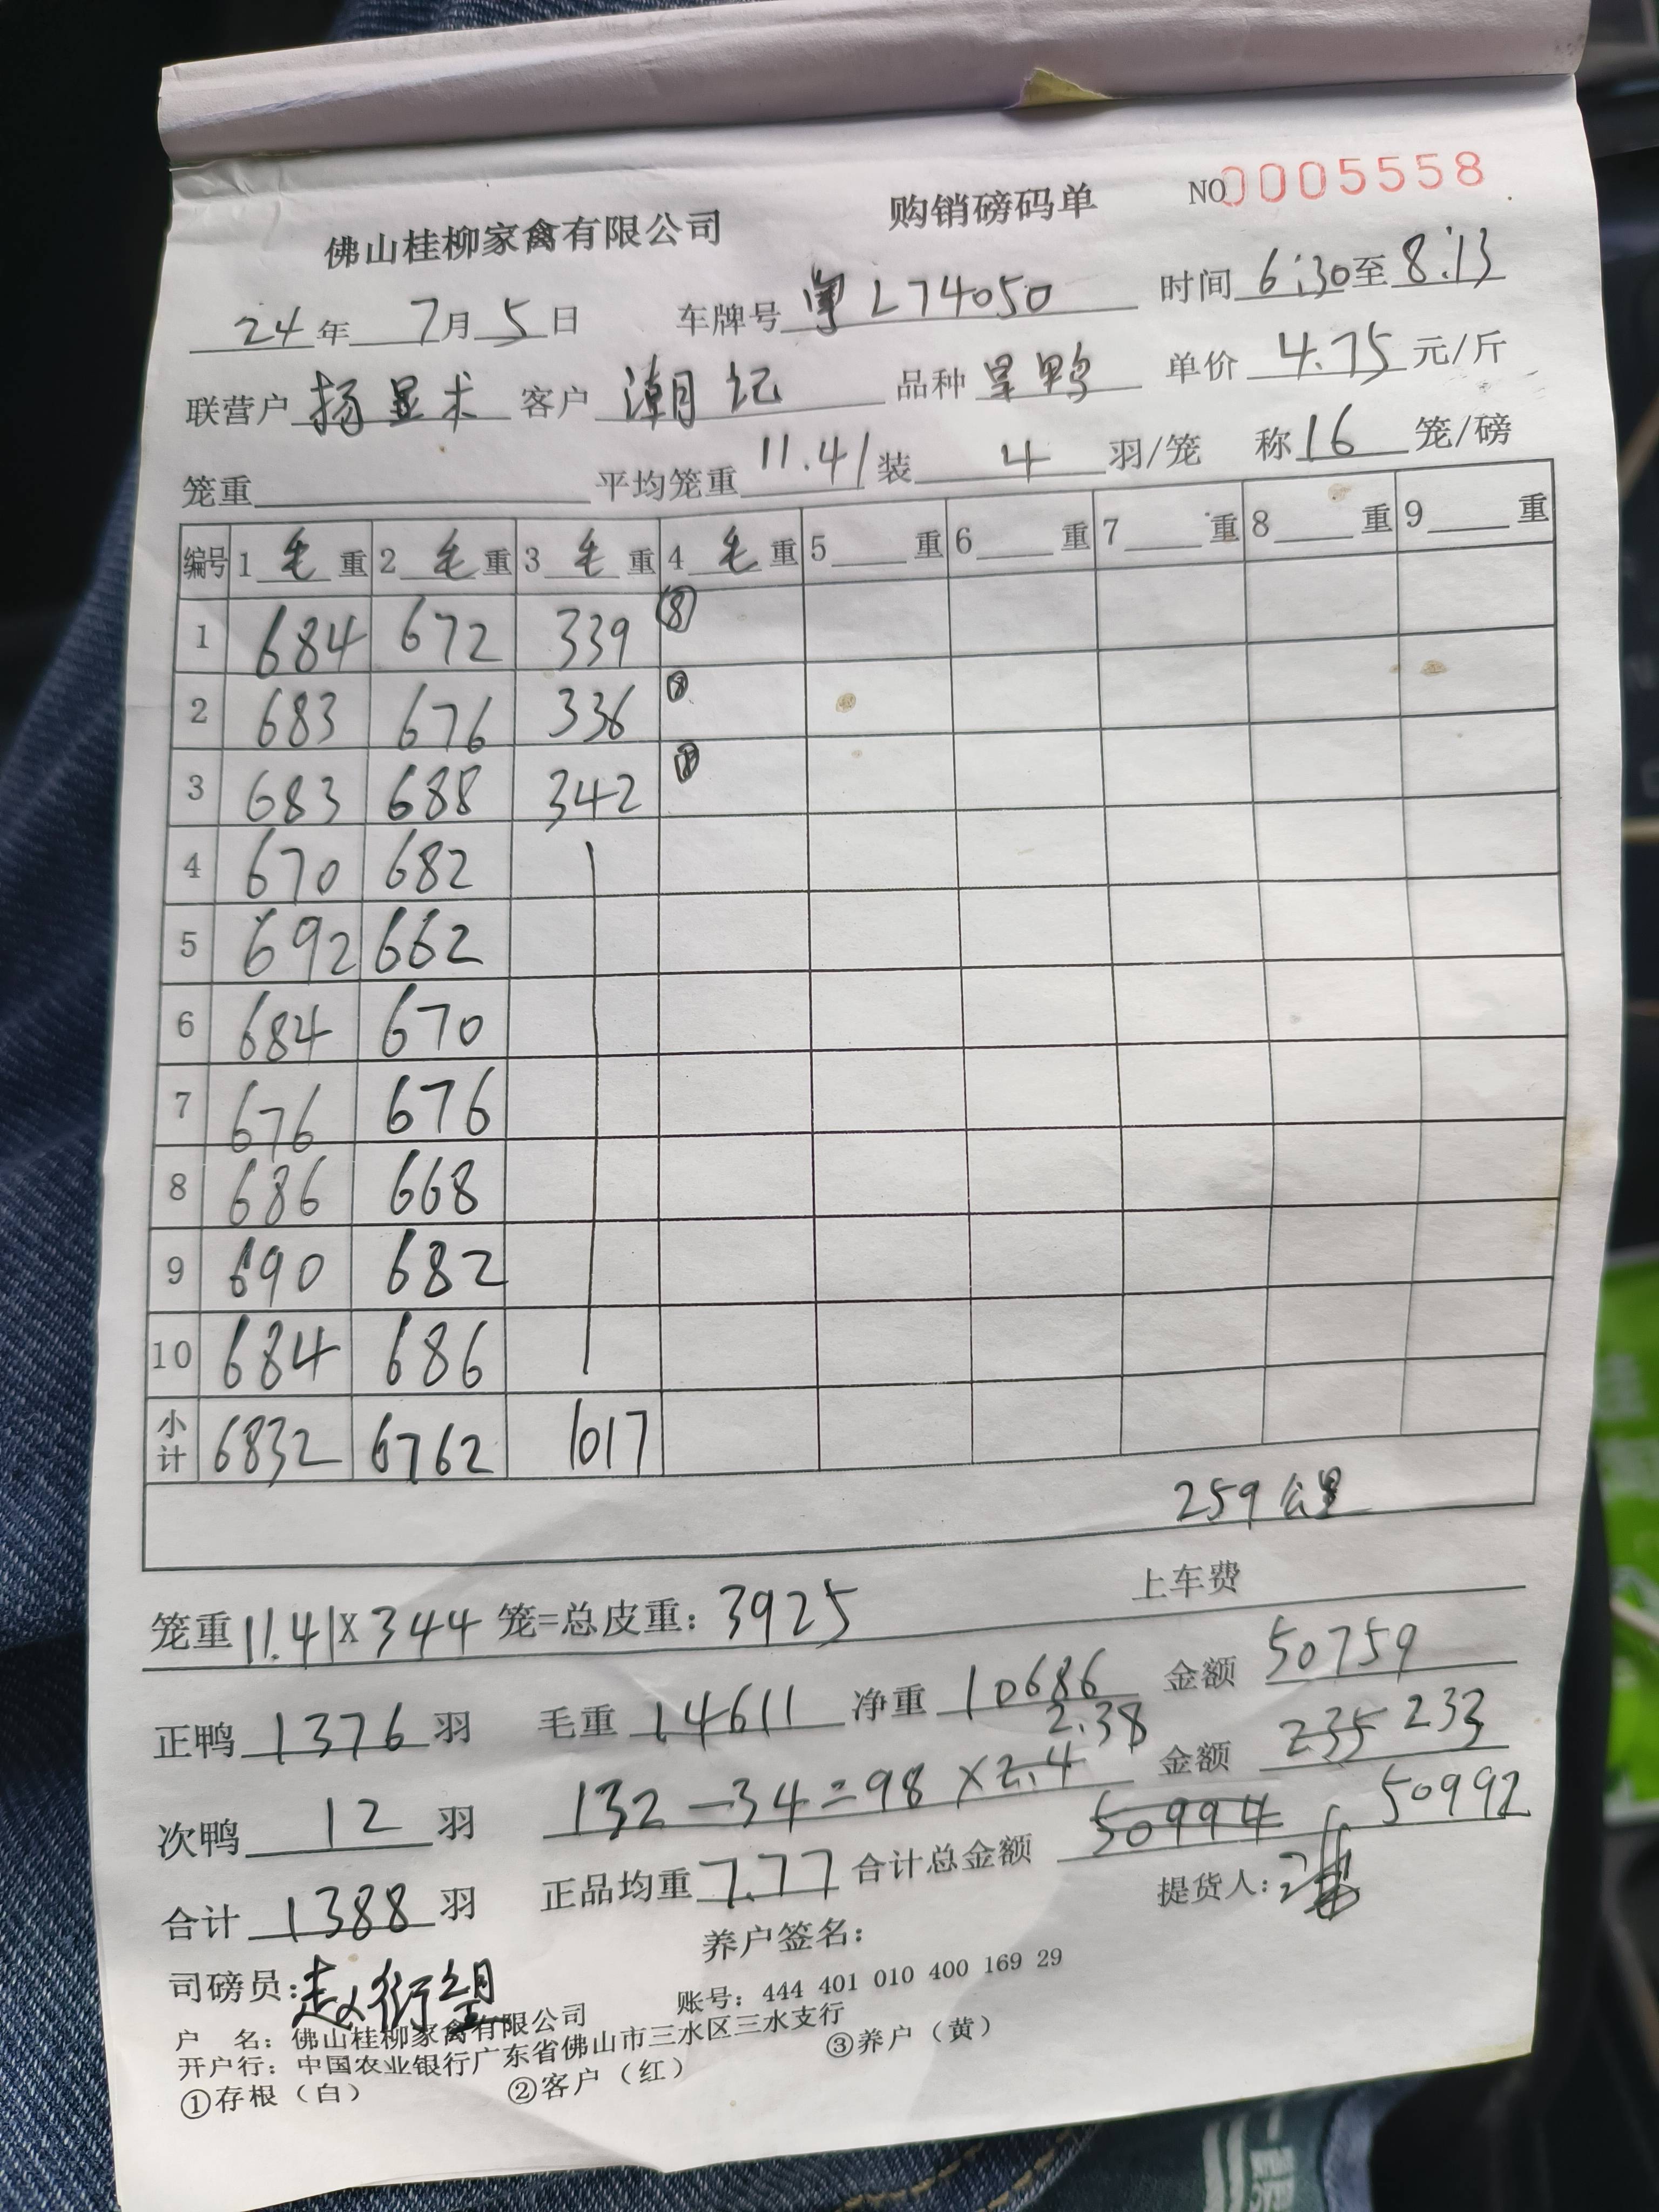 佛山桂柳家禽有限公司 购销磅码单 NO0005558
24年 7月5日 车牌号粤L74050 时间6:30至8:13
联营户杨显术 客户潮记 品种呈鸭 单价4.75元/斤
笼重 平均笼重11.41装4羽/笼 称16笼/磅
编号 1毛重 2毛重 3毛重 4毛重 5重 6重 7重 8重 9重
1 684 672 339 ⑧
2 683 676 336 ⑧
3 683 688 342 ⑧
4 670 682
5 692 662
6 684 670
7 676 676
8 686 668
9 690 682
10 684 686
小计 6832 6762 1017
259公里
笼重11.41X344笼=总皮重:3925 上车费
正鸭1376羽 毛重14611 净重10686 金额50759
2.38
次鸭12羽 132-34=98×2.4 金额235 233
合计1388羽 正品均重7.77 合计总金额50994 50992
司磅员: 养户签名: 提货人:
户 名:佛山桂柳家禽有限公司 账号:444 401 010 400 169 29
开户行:中国农业银行广东省佛山市三水区三水支行
①存根(白) ②客户(红) ③养户(黄)